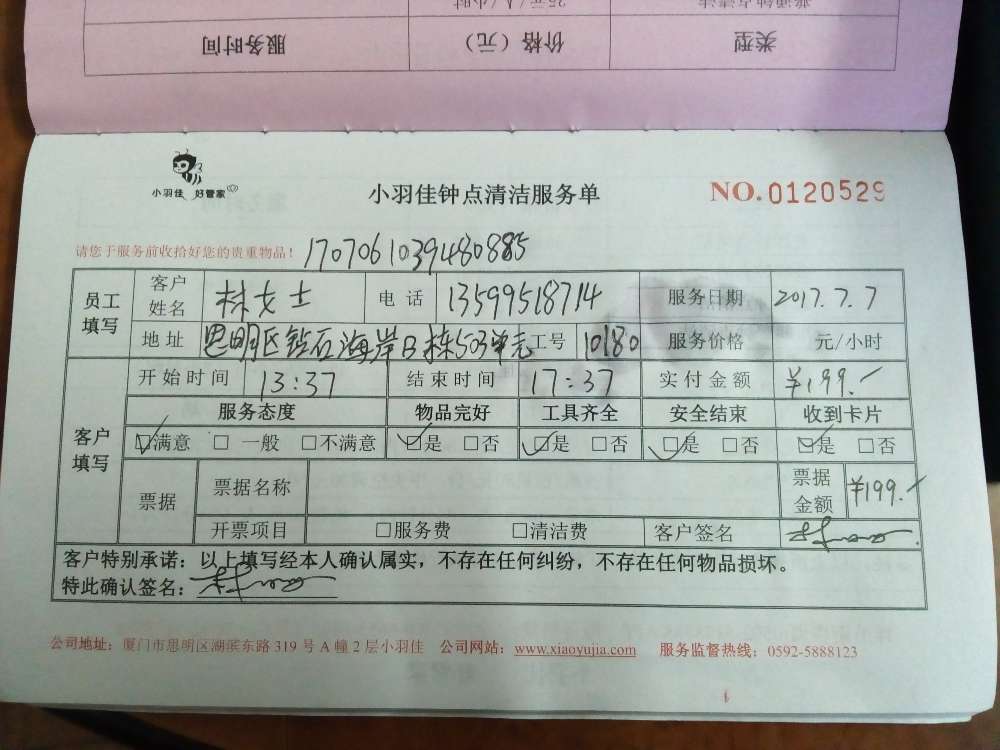 普通钟点清洁
25元/人/小时
类型
价格（元）
服务时间
小羽佳 好管家
小羽佳钟点清洁服务单
NO.0120529
请您于服务前收拾好您的贵重物品！
1707061039480885
员工填写
客户姓名
林女士
电话
13599518714
服务日期
2017.7.7
地址
思明区钻石海岸B栋503单元
工号
10180
服务价格
元/小时
客户填写
开始时间
13:37
结束时间
17:37
实付金额
¥199.-
服务态度
物品完好
工具齐全
安全结束
收到卡片
☑满意 □一般 □不满意
☑是 □否
☑是 □否
☑是 □否
☑是 □否
票据
票据名称
票据金额
¥199.-
开票项目
□服务费 □清洁费
客户签名
客户特别承诺：以上填写经本人确认属实，不存在任何纠纷，不存在任何物品损坏。
特此确认签名：
公司地址：厦门市思明区湖滨东路319号A幢2层小羽佳 公司网站：www.xiaoyujia.com 服务监督热线：0592-5888123